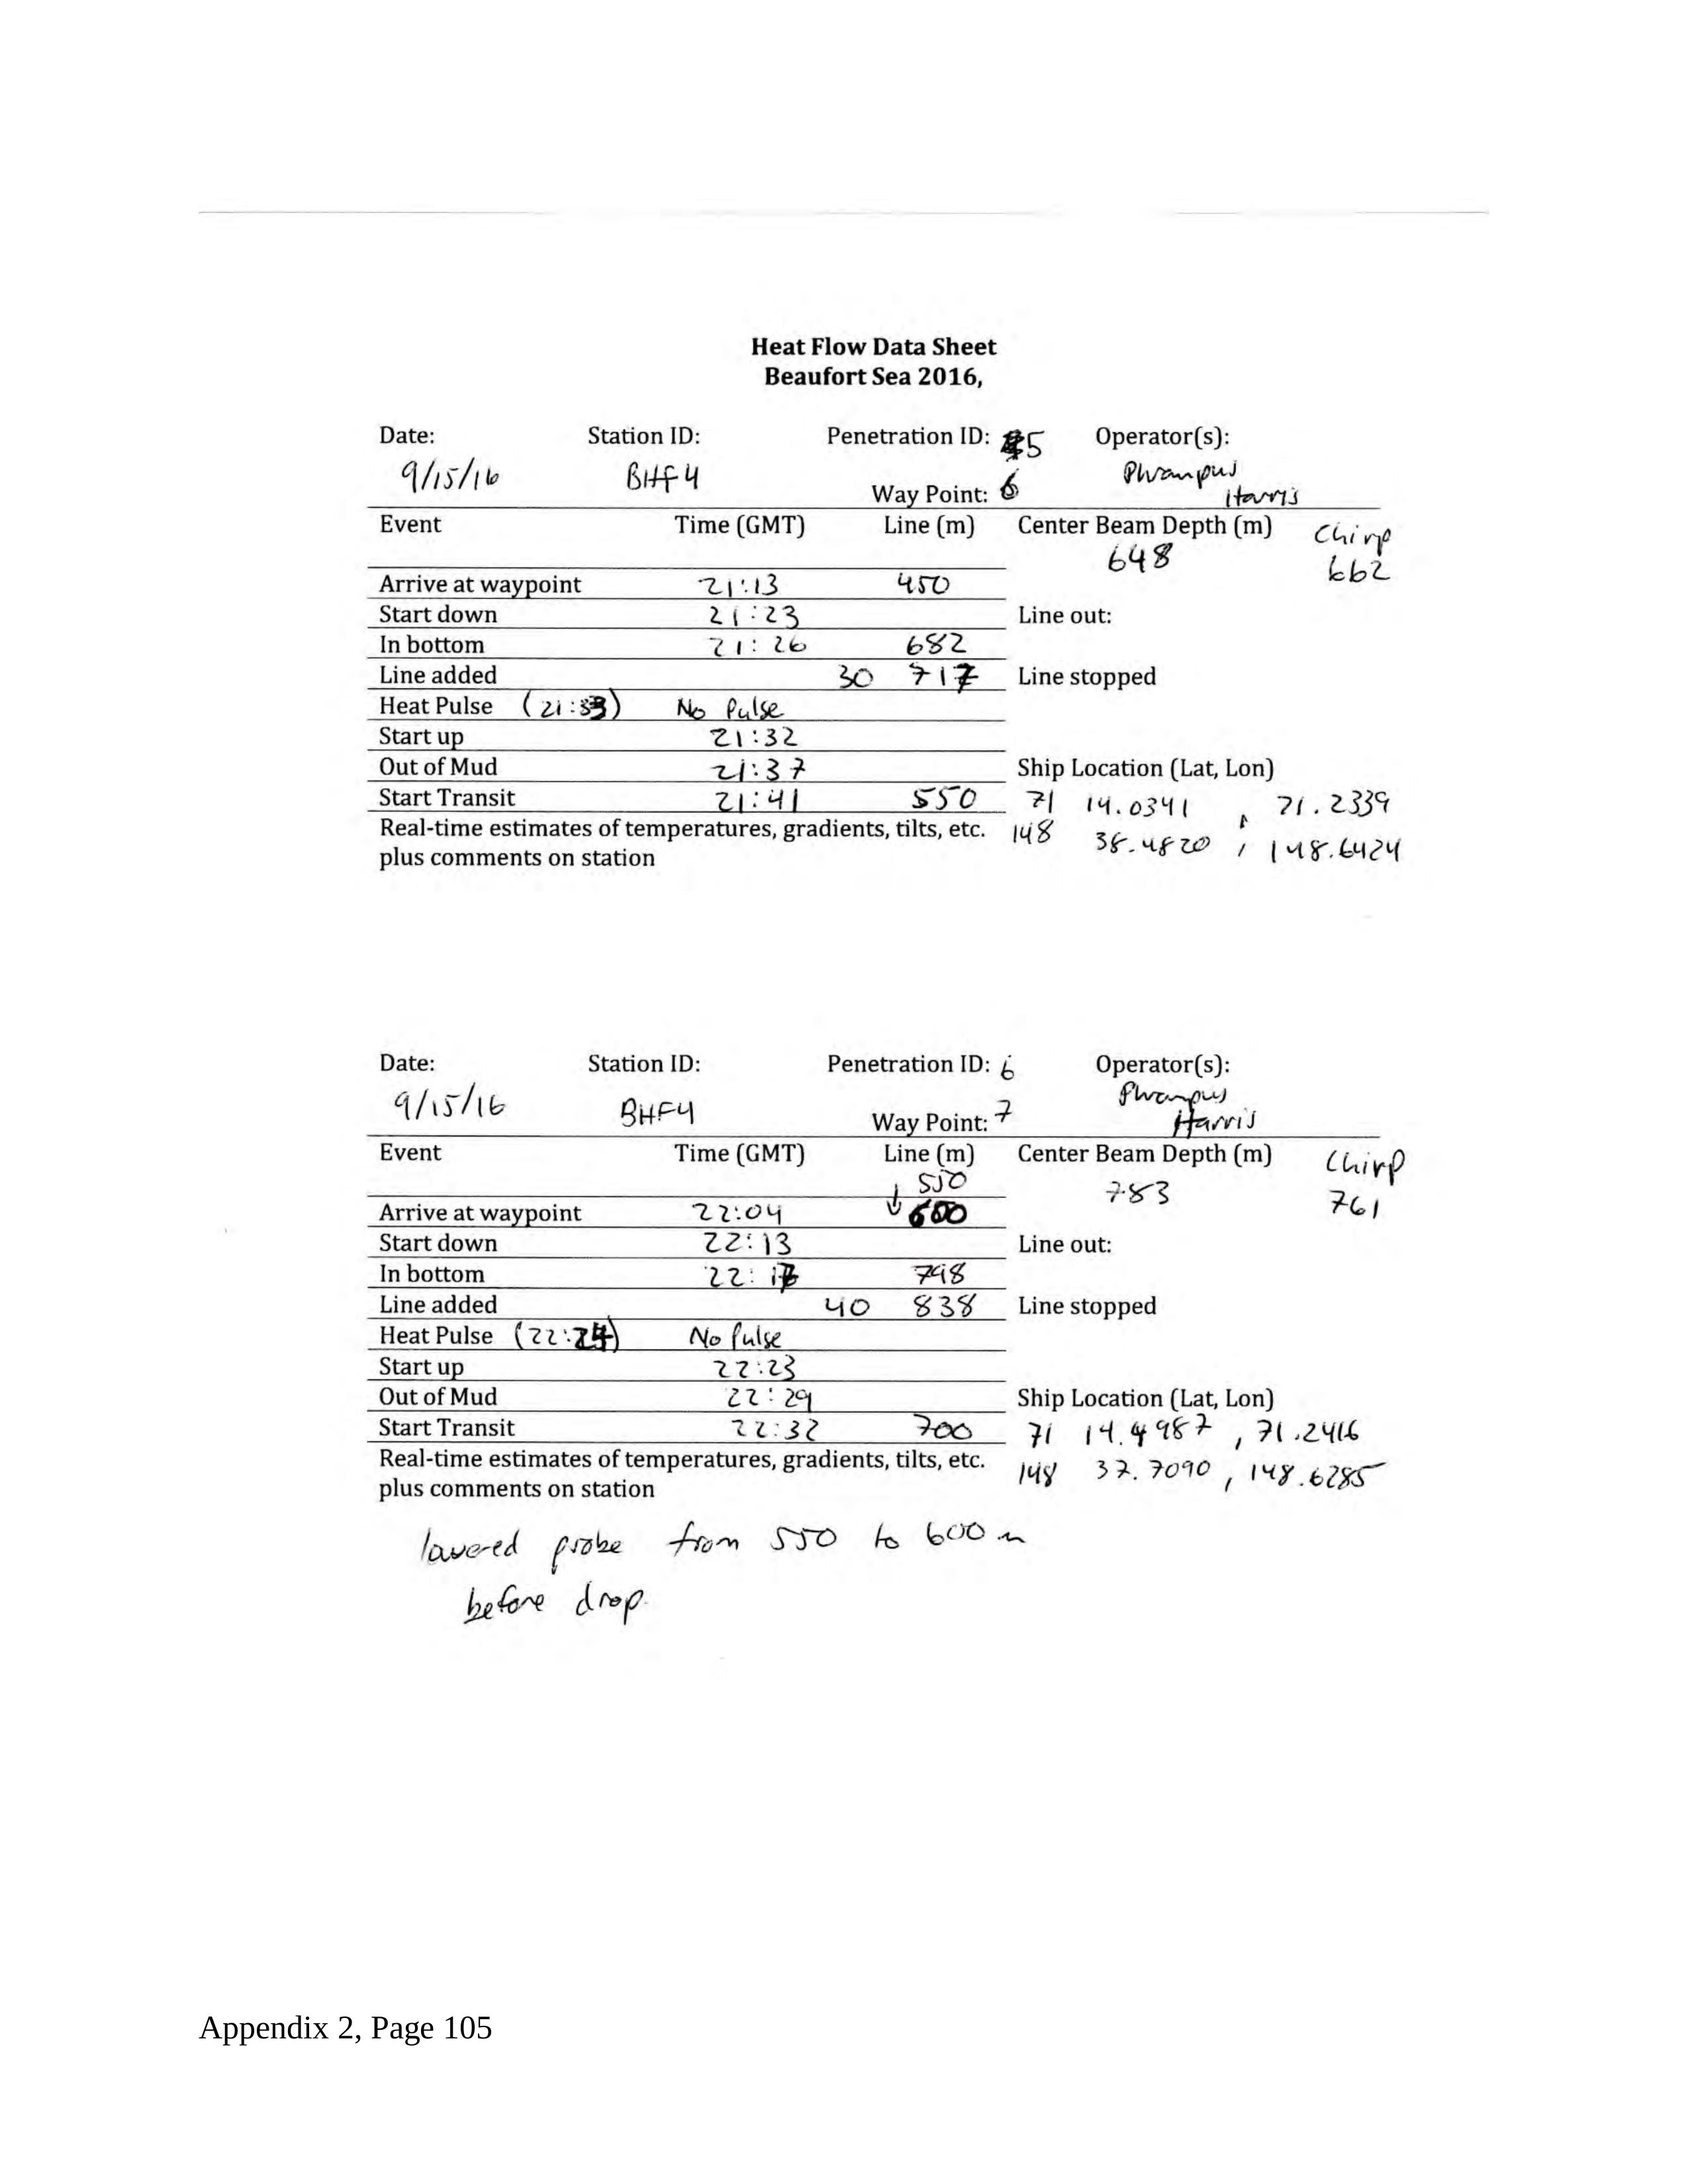 Heat Flow Data Sheet
Beaufort Sea 2016,
Date: Station ID: Penetration ID: 5 Operator(s):
9/15/16 BHF4 Phrampus
Way Point: 6 Harris
Event Time (GMT) Line (m) Center Beam Depth (m) Chirp
648 662
Arrive at waypoint 21:13 450
Start down 21:23 Line out:
In bottom 21:26 682
Line added 30 717 Line stopped
Heat Pulse (21:33) No Pulse
Start up 21:32
Out of Mud 21:37 Ship Location (Lat, Lon)
Start Transit 21:41 550 71 14.0341 , 71.2339
Real-time estimates of temperatures, gradients, tilts, etc. 148 38.4820 , 148.6424
plus comments on station
Date: Station ID: Penetration ID: 6 Operator(s):
9/15/16 BHF4 Phrampus
Way Point: 7 Harris
Event Time (GMT) Line (m) Center Beam Depth (m) Chirp
550 783 761
Arrive at waypoint 22:04 600
Start down 22:13 Line out:
In bottom 22: 798
Line added 40 838 Line stopped
Heat Pulse (22:24) No Pulse
Start up 22:23
Out of Mud 22:29 Ship Location (Lat, Lon)
Start Transit 22:32 700 71 14.4987 , 71.2416
Real-time estimates of temperatures, gradients, tilts, etc. 148 37.7090 , 148.6285
plus comments on station
lowered probe from 550 to 600 m
before drop.
Appendix 2, Page 105